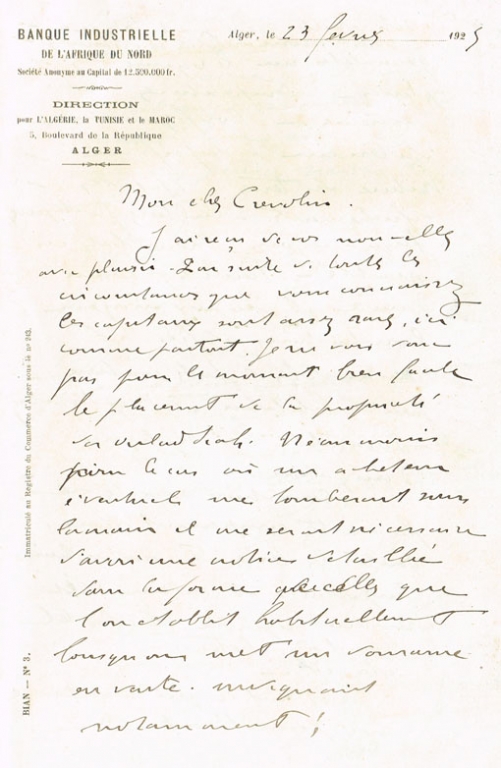 BANQUE INDUSTRIELLE
DE L'AFRIQUE DU NORD
Société Anonyme au Capital de 12.500.000 fr.
DIRECTION
pour L'ALGÉRIE, la TUNISIE et le MAROC
5, Boulevard de la République
ALGER
Alger, le 23 février 1925
Mon cher
J'ai reçu de vos nouvelles
avec plaisir. Par suite de toutes les
circonstances que vous connaissez
les capitaux sont assez rares, ici
comme partout. Je ne vois donc
pas pour le moment bien facile
le placement de la propriété
des Néanmoins
pour le cas où un acheteur
éventuel me tomberait sous
la main il me serait nécessaire
d'avoir une notice détaillée
dans la forme de celles que
l'on établit habituellement
lorsqu'on met un domaine
en vente. indiquant
notamment :
Immatriculé au Registre du Commerce d'Alger sous le nº 243.
BIAN — Nº 3.